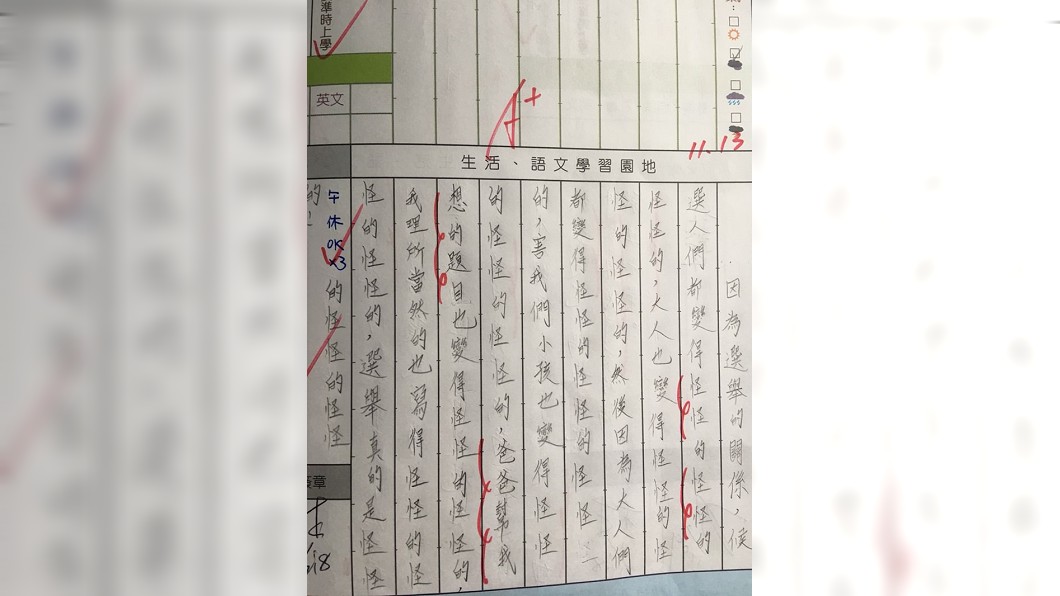 準時上學
英文
A+
11.13
生活、語文學習園地
因為選舉的關係,候
選人們都變得怪怪的怪怪的
怪怪的,大人也變得怪怪的怪
怪的怪怪的,然後因為大人們
都變得怪怪的怪怪的怪怪
的,害我們小孩也變得怪怪
的怪怪的怪怪的,爸爸幫我
想的題目也變得怪怪的怪怪的,
我理所當然的也寫得怪怪的怪
怪的怪怪的,選舉真的是怪怪
的怪怪的怪怪
午休OK
x3
的,
章